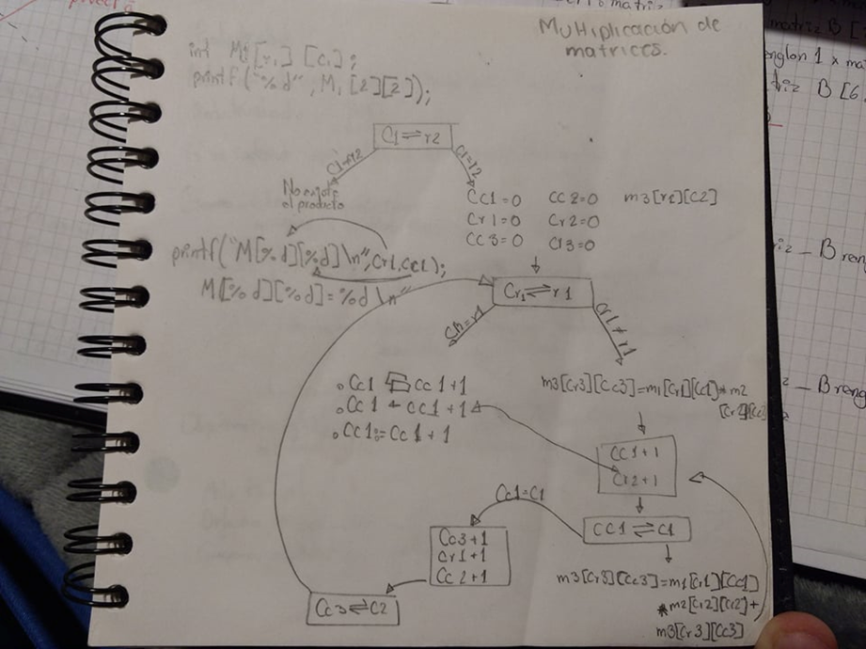 Multiplicación de
matrices.
int M₁[r₁][c₁];
printf("%d", M₁[2][2]);
C1⇌r2
C1=r2
No existe
el producto
CC1=0 CC2=0 m3[r1][C2]
Cr1=0 Cr2=0
CC3=0 Cr3=0
printf("M[%d][%d]\n",Cr1,CC1);
M[%d][%d]=%d\n"
Cr₁⇌r1
Cr1≠r1
m3[Cr3][Cc3]=m1[Cr1][Cc1]*m2
∘Cc1 Cc1+1
∘Cc1 ← CC1+1
∘CC1:=Cc1+1
CC1+1
Cr2+1
Cc1=C1
CC1⇌C1
Cc3+1
Cr1+1
Cc2+1
Cc3⇌C2
m3[Cr3][Cc3]=m1[Cr1][Cc1]
*m2[Cr2][Cc2]+
m3[Cr3][Cc3]
matriz B [
renglon 1 x
B [6,
B ren
B reng